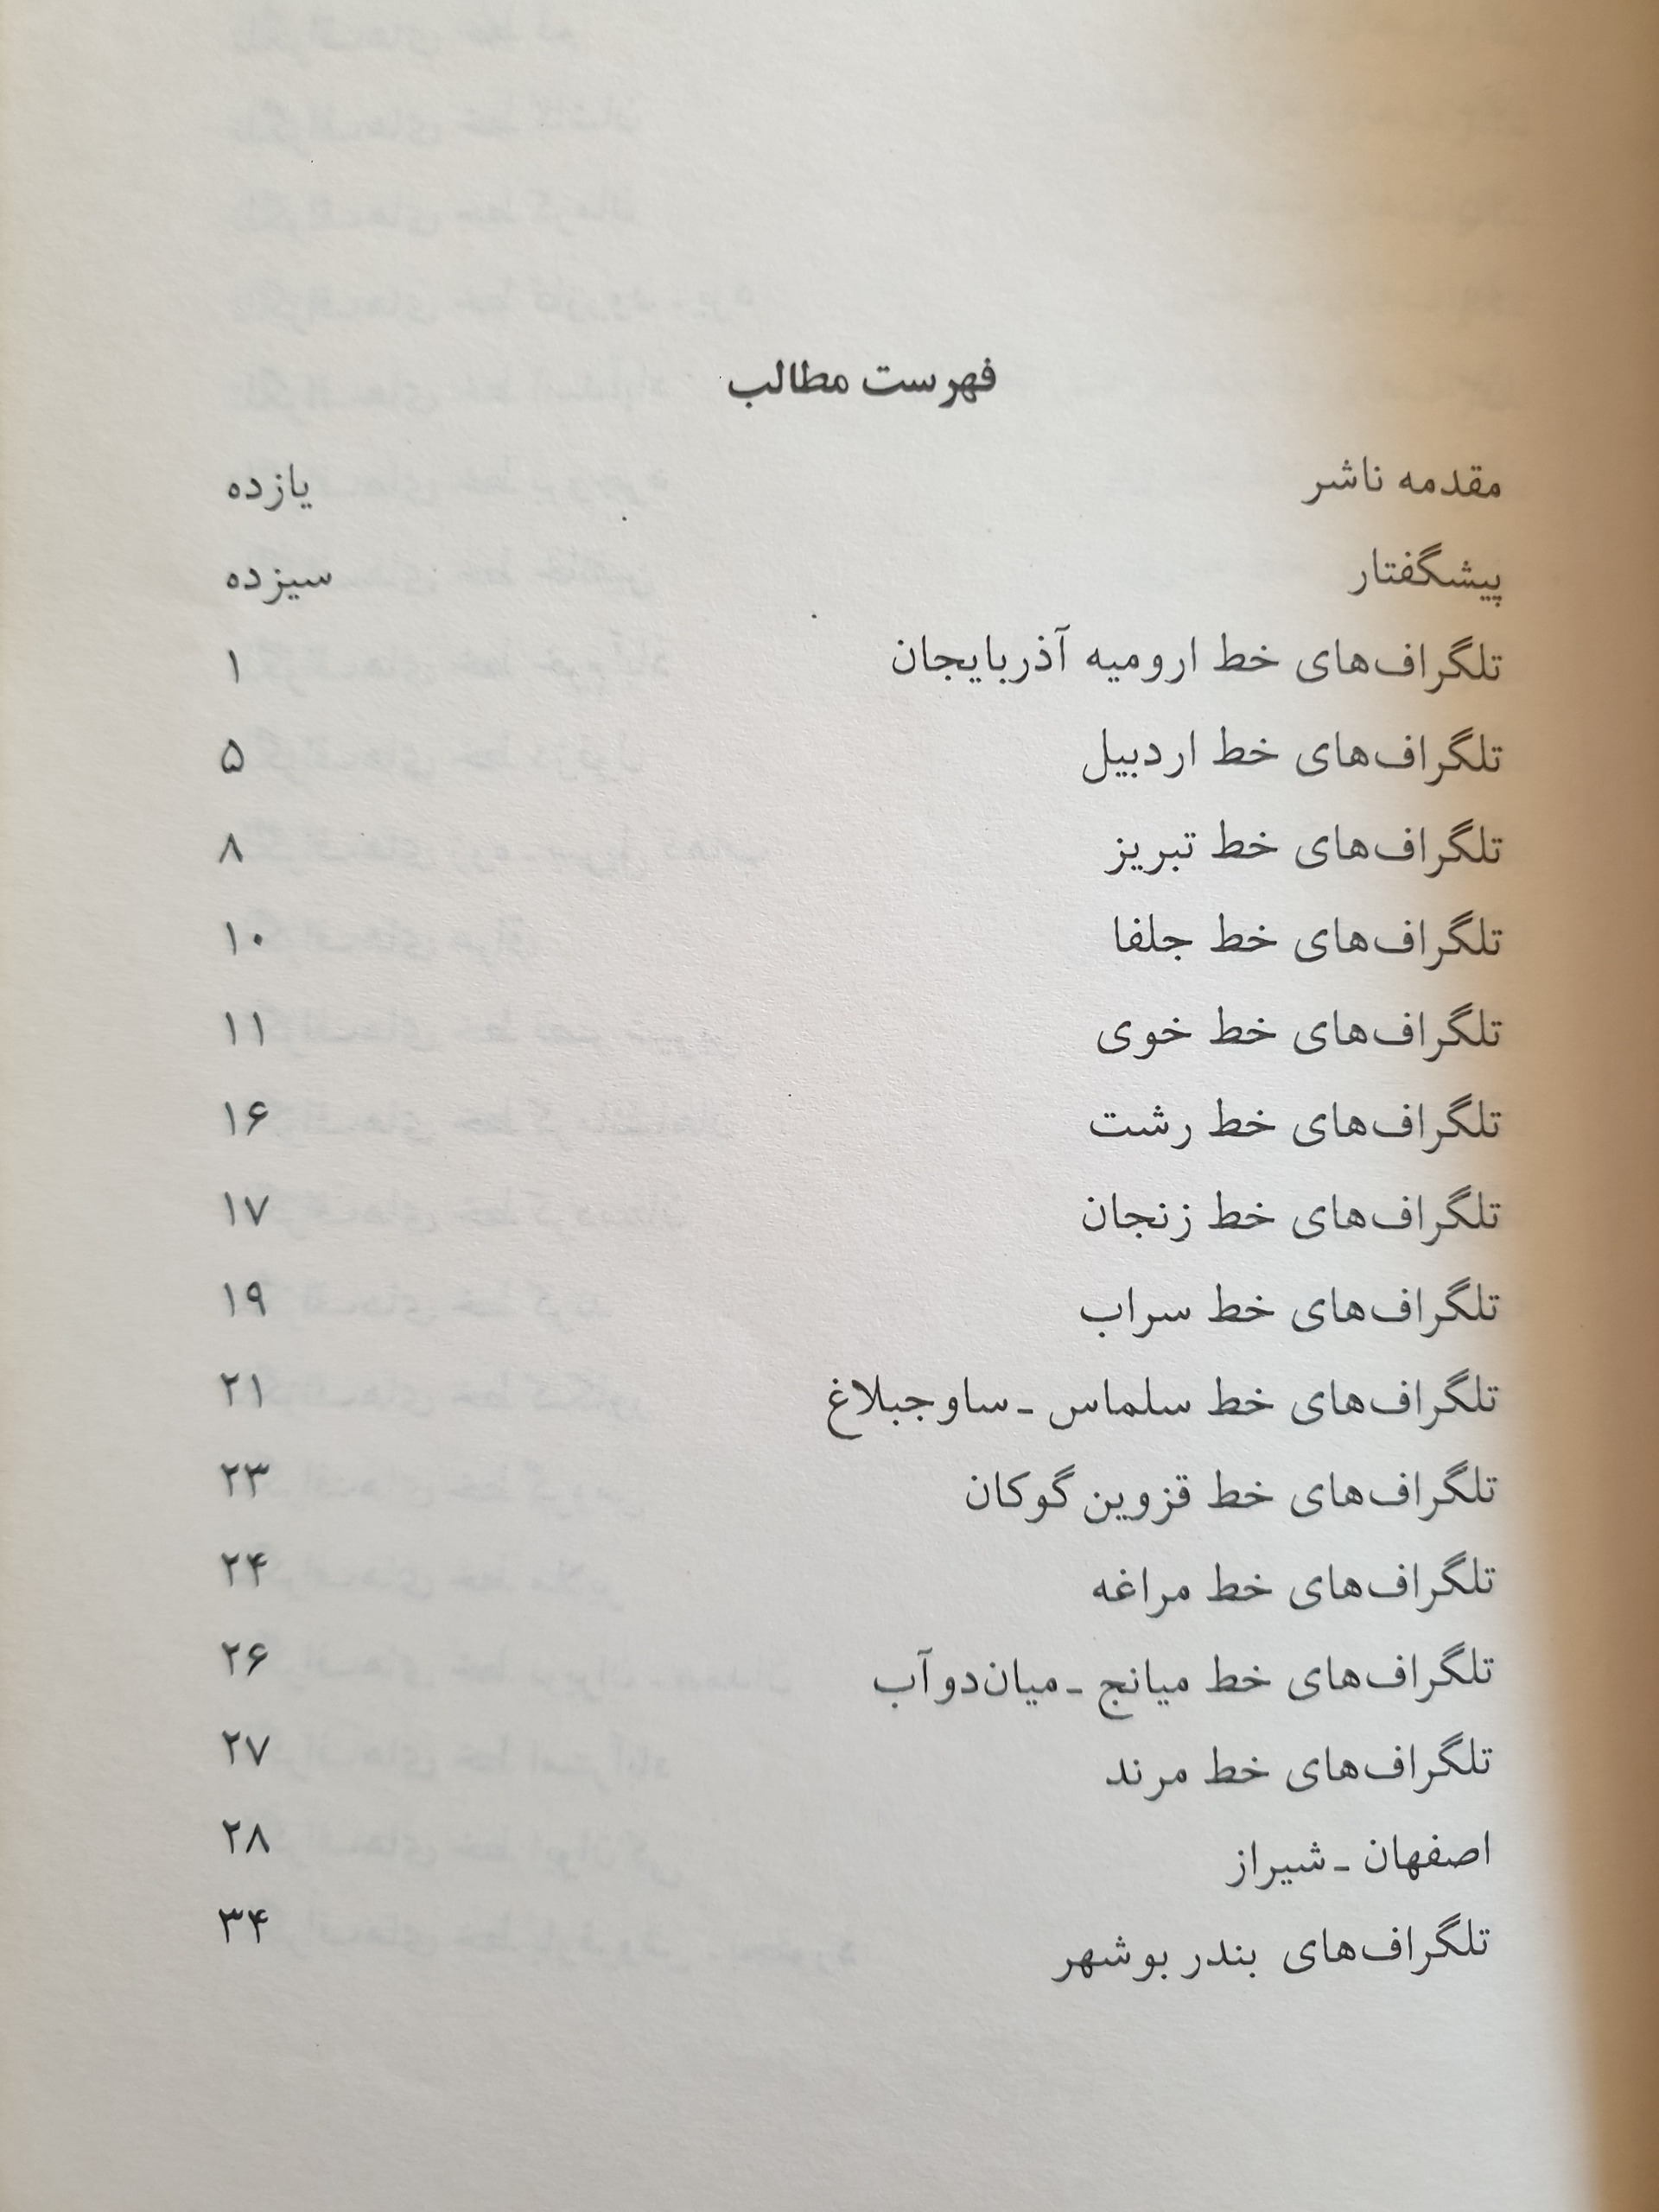 فهرست مطالب
مقدمه ناشر یازده
پیشگفتار سیزده
تلگراف‌های خط ارومیه آذربایجان ۱
تلگراف‌های خط اردبیل ۵
تلگراف‌های خط تبریز ۸
تلگراف‌های خط جلفا ۱۰
تلگراف‌های خط خوی ۱۱
تلگراف‌های خط رشت ۱۶
تلگراف‌های خط زنجان ۱۷
تلگراف‌های خط سراب ۱۹
تلگراف‌های خط سلماس ـ ساوجبلاغ ۲۱
تلگراف‌های خط قزوین گوکان ۲۳
تلگراف‌های خط مراغه ۲۴
تلگراف‌های خط میانج ـ میان‌دوآب ۲۶
تلگراف‌های خط مرند ۲۷
اصفهان ـ شیراز ۲۸
تلگراف‌های بندر بوشهر ۳۴